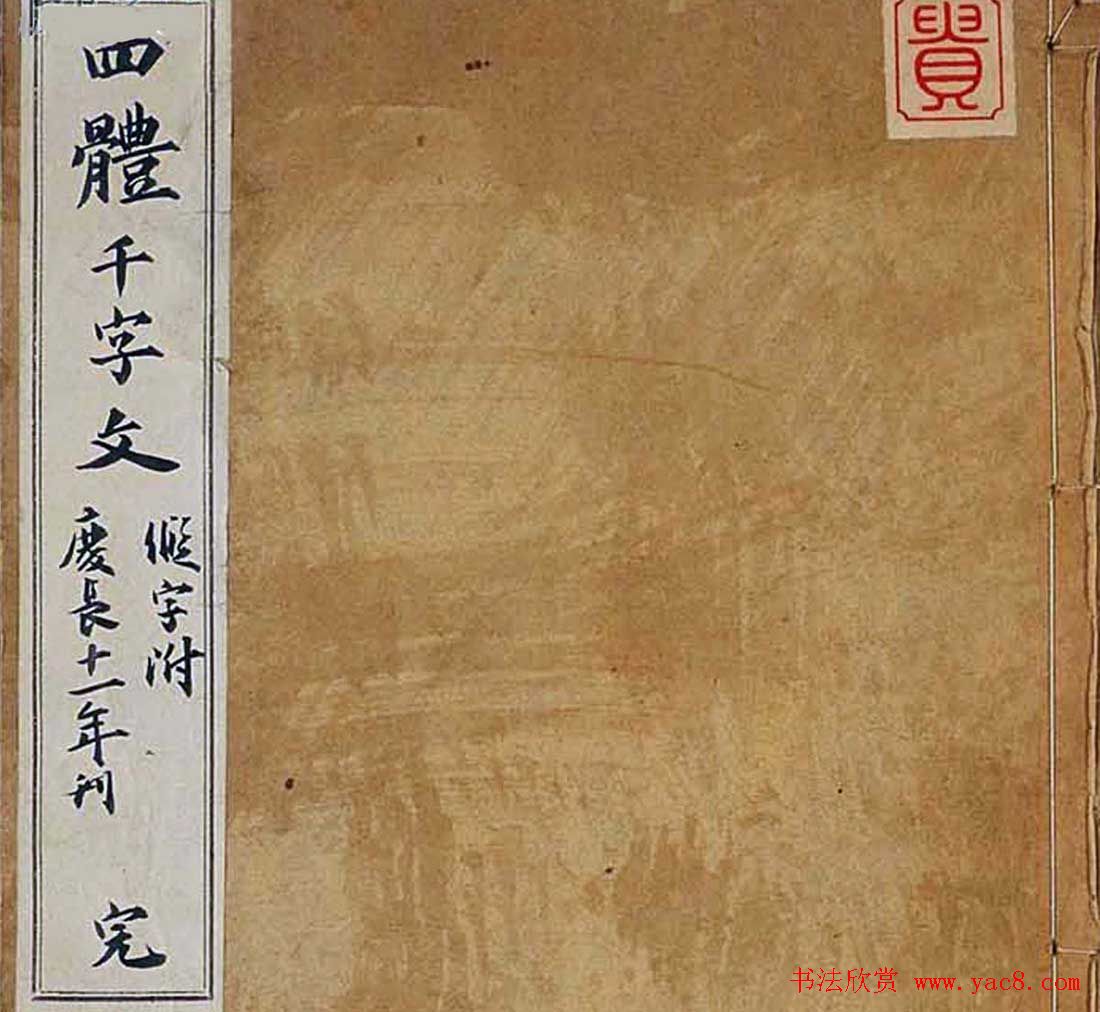 四體千字文
假字附
慶長十一年刊
完
貴
书法欣赏 www.yac8.com